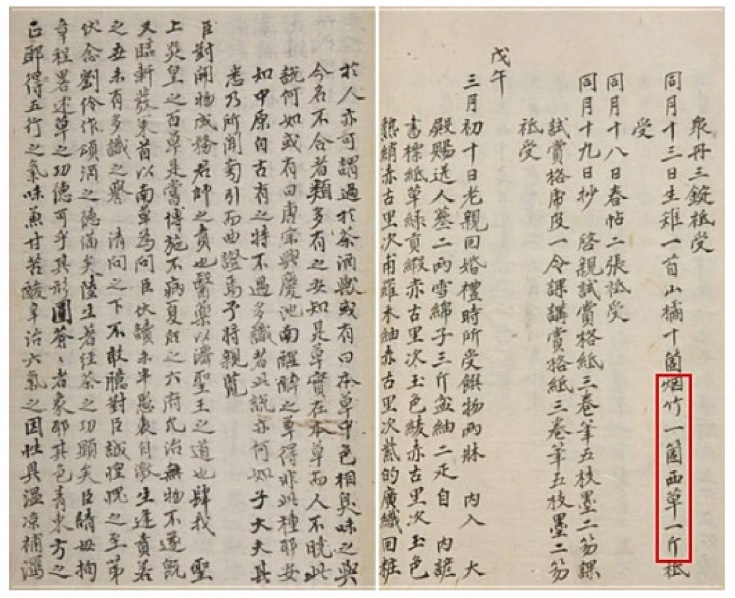 衆丹三錠祗受
同月十三日生雉一首山橘十箇烟竹一箇西草一斤祗
受
同月十八日春帖二張祗受
同月十九日抄 啓親試賞格紙三卷筆五枝墨二笏課
試賞格虎皮一令課講賞格紙三卷筆五枝墨二笏
祗受
戊午
三月初十日老親回婚禮時所受饌物兩牀 內入 大
殿賜送人蔘二兩雪綿子三斤盆紬二疋自 內諺
書標紙草綠貢緞赤古里次玉色綾赤古里次玉色
熟綃赤古里次甫羅禾紬赤古里次紫的廣織回粧
於人亦可謂過於茶酒歟或有曰本草中色相臭味之與
今名不合者類多有之安知是草實在本草而人不曉此
說何如或有曰唐宗興慶池南醒醉之草得非此種耶安
知中原自古有之特不遇多識者此說亦何如子大夫其
悉乃所聞旁引而曲證焉予將親覽
臣對開物成務君師之責也醫藥以濟聖王之道也肆我 聖
上炎皇之百草是嘗博施不病夏后之六府允治無物不遂旣
又臨軒發策首以南草為問臣伏讀未半愚衷自激生逢賁若
之世未有多識之譽 清問之下不敢臆對臣誠惶愧之至第
伏念劉伶作頌酒之德滿矣陸生著經茶之功顯矣臣請毋拘
章程畧述草之功德可乎其形圓蒼〻者象耶其色青東方之
正耶得五行之氣味兼甘苦酸辛治六氣之因性具溫凉補瀉